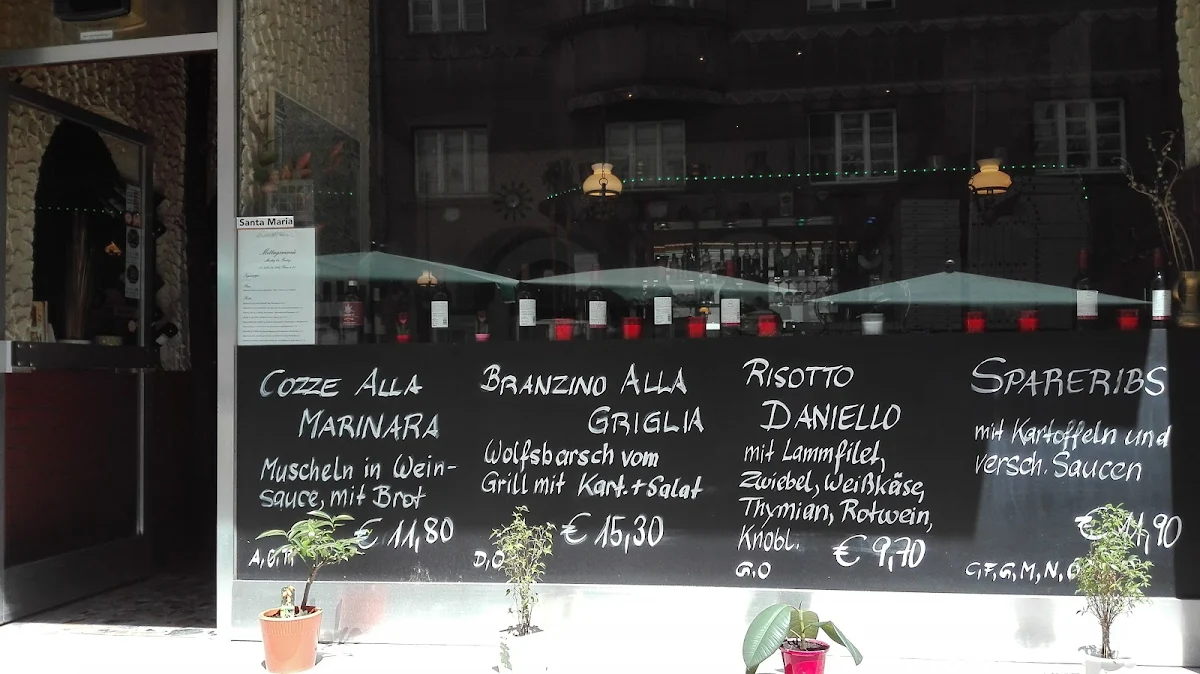 Santa Maria
Mittagsmenü
COZZE ALLA
MARINARA
Muscheln in Wein-
sauce, mit Brot
€ 11,80
BRANZINO ALLA
GRIGLIA
Wolfsbarsch vom
Grill mit Kart. + Salat
€ 15,30
D,O
RISOTTO
DANIELLO
mit Lammfilet,
Zwiebel, Weißkäse,
Thymian, Rotwein,
Knobl.
€ 9,70
G,O
SPARERIBS
mit Kartoffeln und
versch. Saucen
€ 11,90
C,F,G,M,N,O